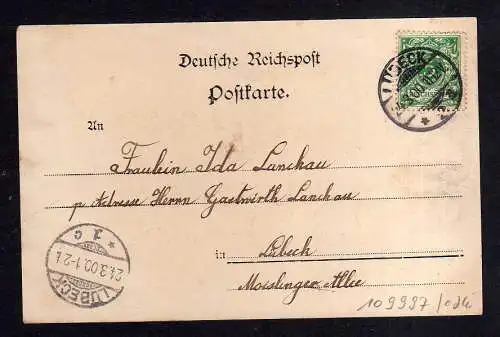 Deutsche Reichspost
Postkarte.
An
LÜBECK
Fraulein Ida Lanckau
p. Adresse Herrn Gastwirth Lanckau
in Lübeck
Moislinger Allee
* 1 c
21.3.00.1-2 N.
LÜBECK
109997